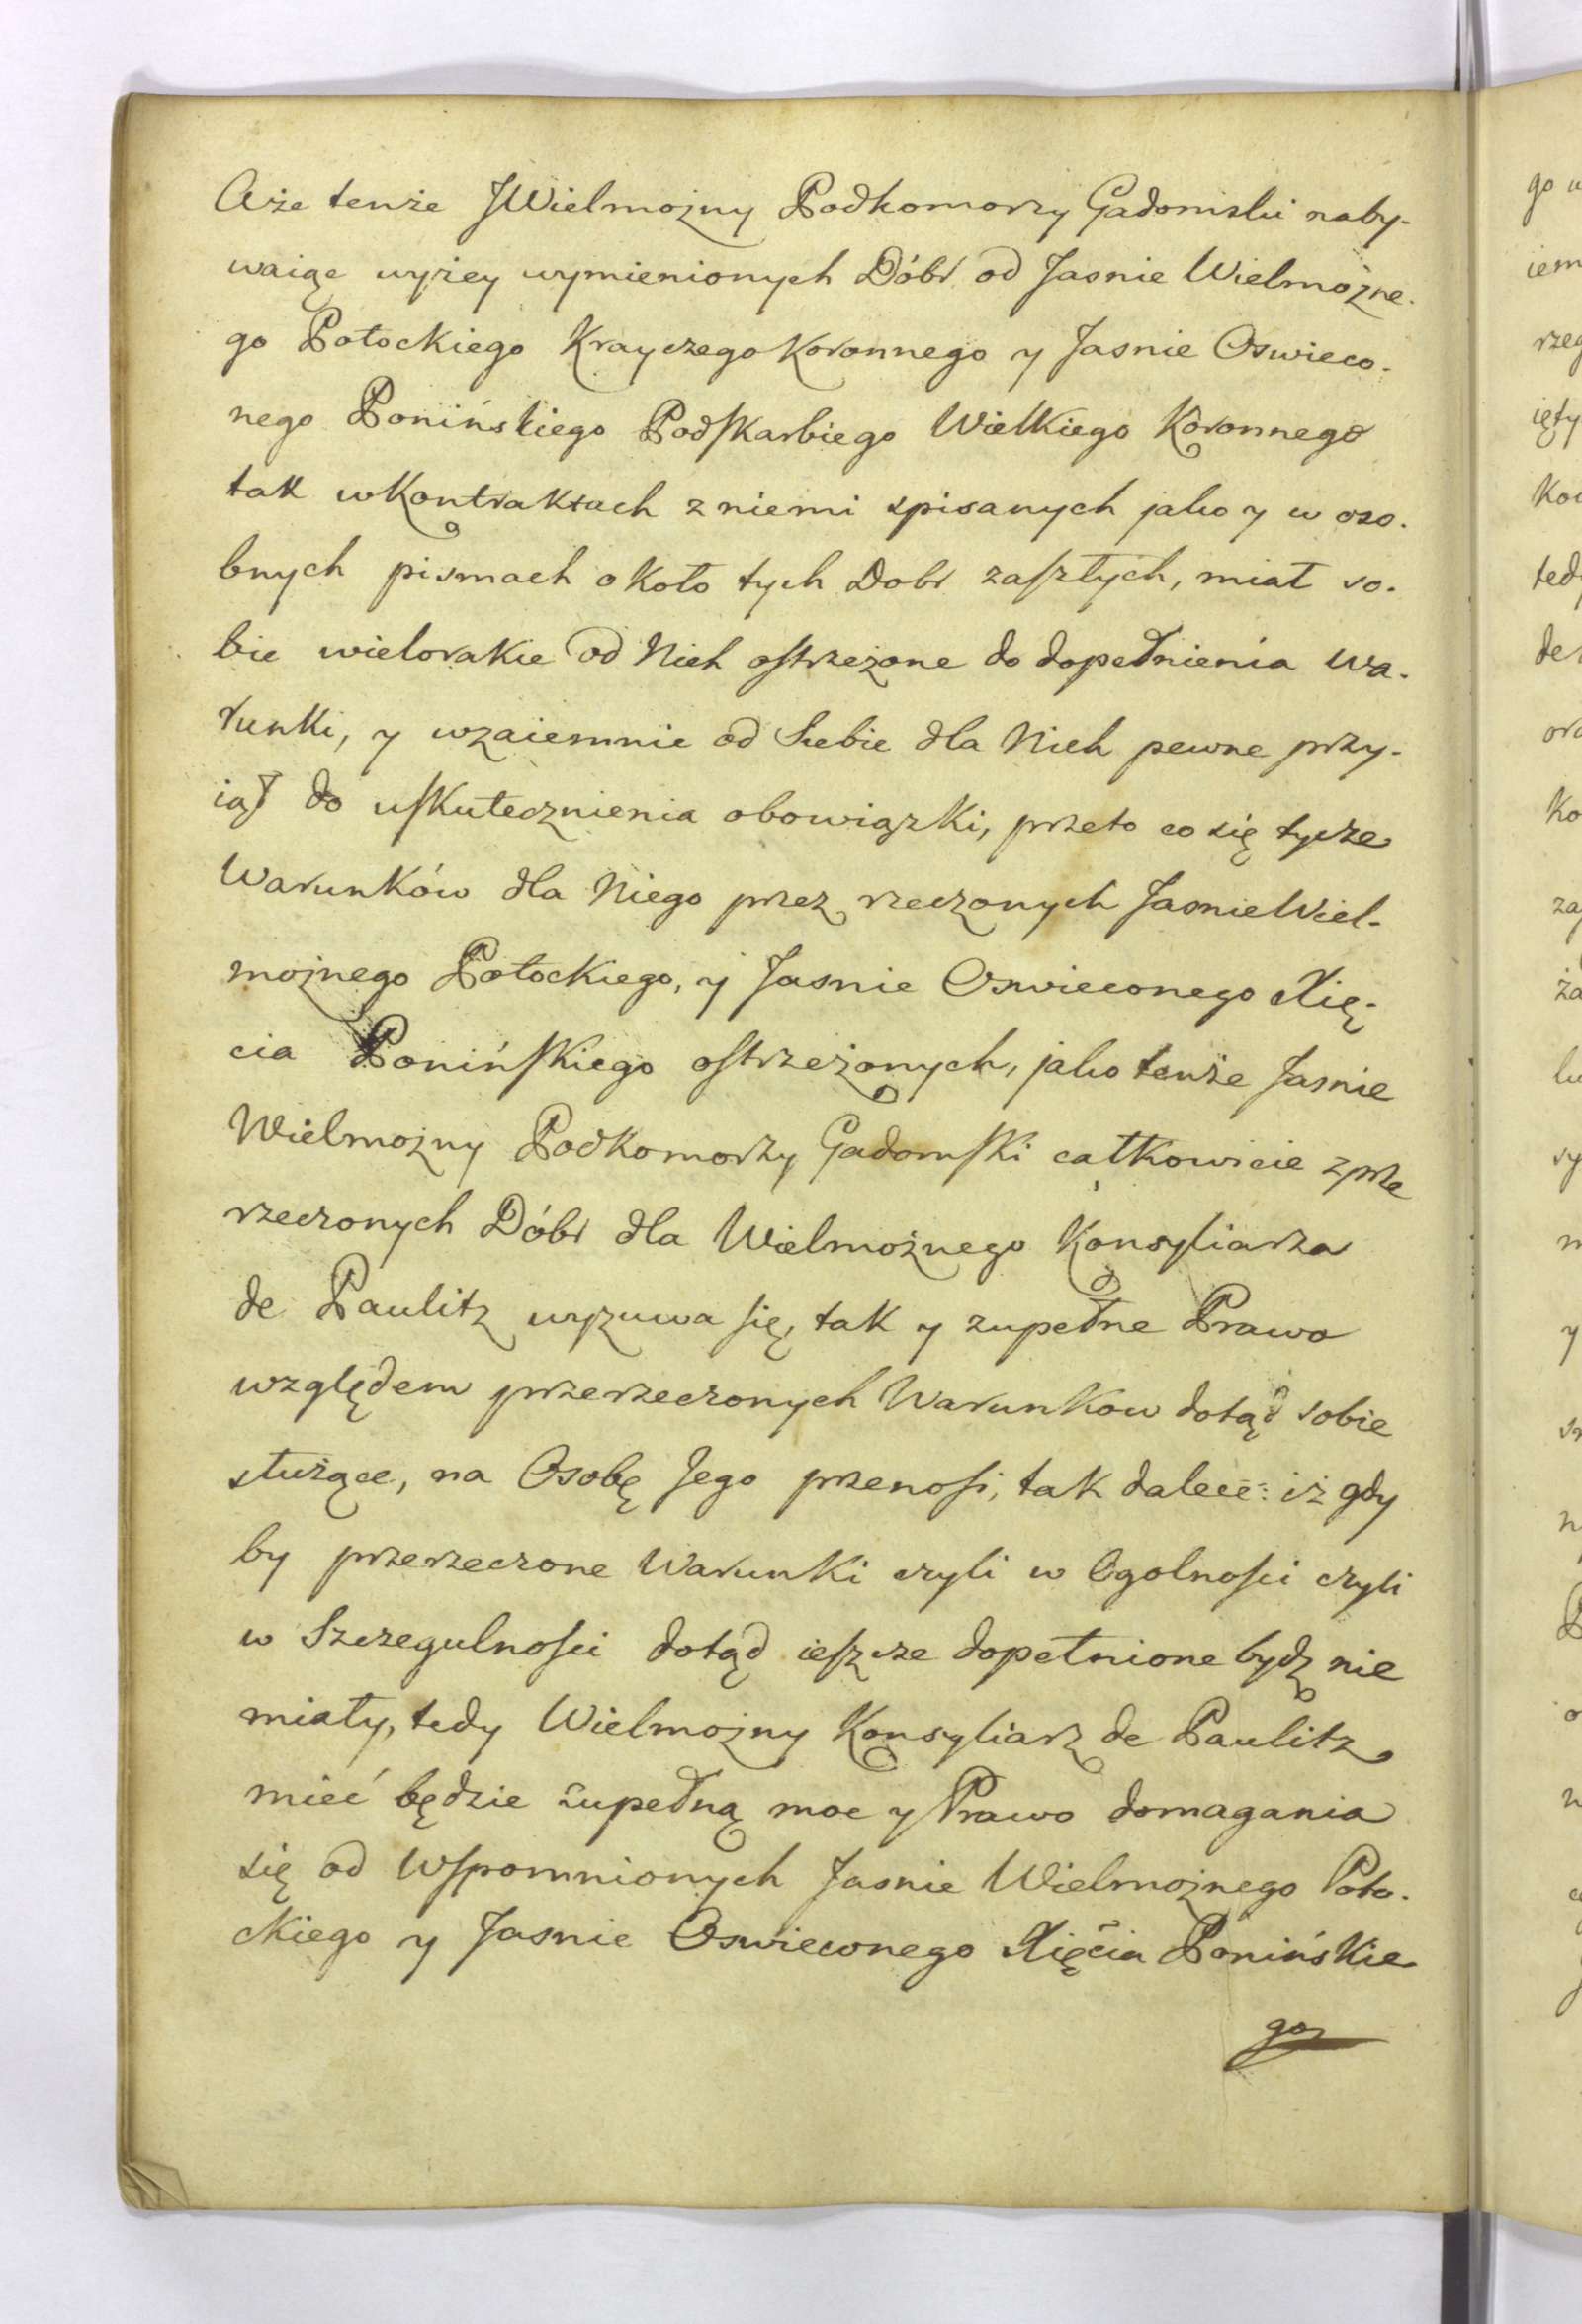 Aże tenże JWielmozny Podkomorzy Gadomski naby-
waiąc wyżey wymienionych Dóbr od Jasnie Wielmożne-
go Potockiego Krayczego Koronnego y Jasnie Oswieco-
nego Ponińskiego Podskarbiego Wielkiego Koronnego
tak w Kontraktach z niemi spisanych jako y w oso-
bnych pismach około tych Dobr zaszłych, miał so-
bie wielorakie od Nich ostrzeżone do dopełnienia Wa-
runki, y wzaiemnie od Siebie dla Nich pewne przy-
iął do uskutecznienia obowiązki, przeto co się tycze
Warunków dla Niego przez rzeczonych Jasnie Wiel-
moznego Potockiego, y Jasnie Oswieconego Xię-
cia Ponińskiego ostrzeżonych, jako tenże Jasnie
Wielmozny Podkomorzy Gadomski całkowicie z prze
rzeczonych Dóbr dla Wielmożnego Konsyliarza
de Paulitz wyzuwa się, tak y zupełne Prawo
względem przerzeczonych Warunkow dotąd sobie
służące, na Osobę Jego przenosi, tak dalece: iż gdy
by przerzeczone Warunki czyli w Ogolności czyli
w Szczegulności dotąd ieszcze dopełnione bydz nie
miały, tedy Wielmozny Konsyliarz de Paulitz
mieć będzie zupełną moc y Prawo domagania
się od Wspomnionych Jasnie Wielmożnego Poto-
ckiego y Jasnie Oswieconego Xięcia Ponińskie-
go
go
iem
rzeg
ięty
tedy